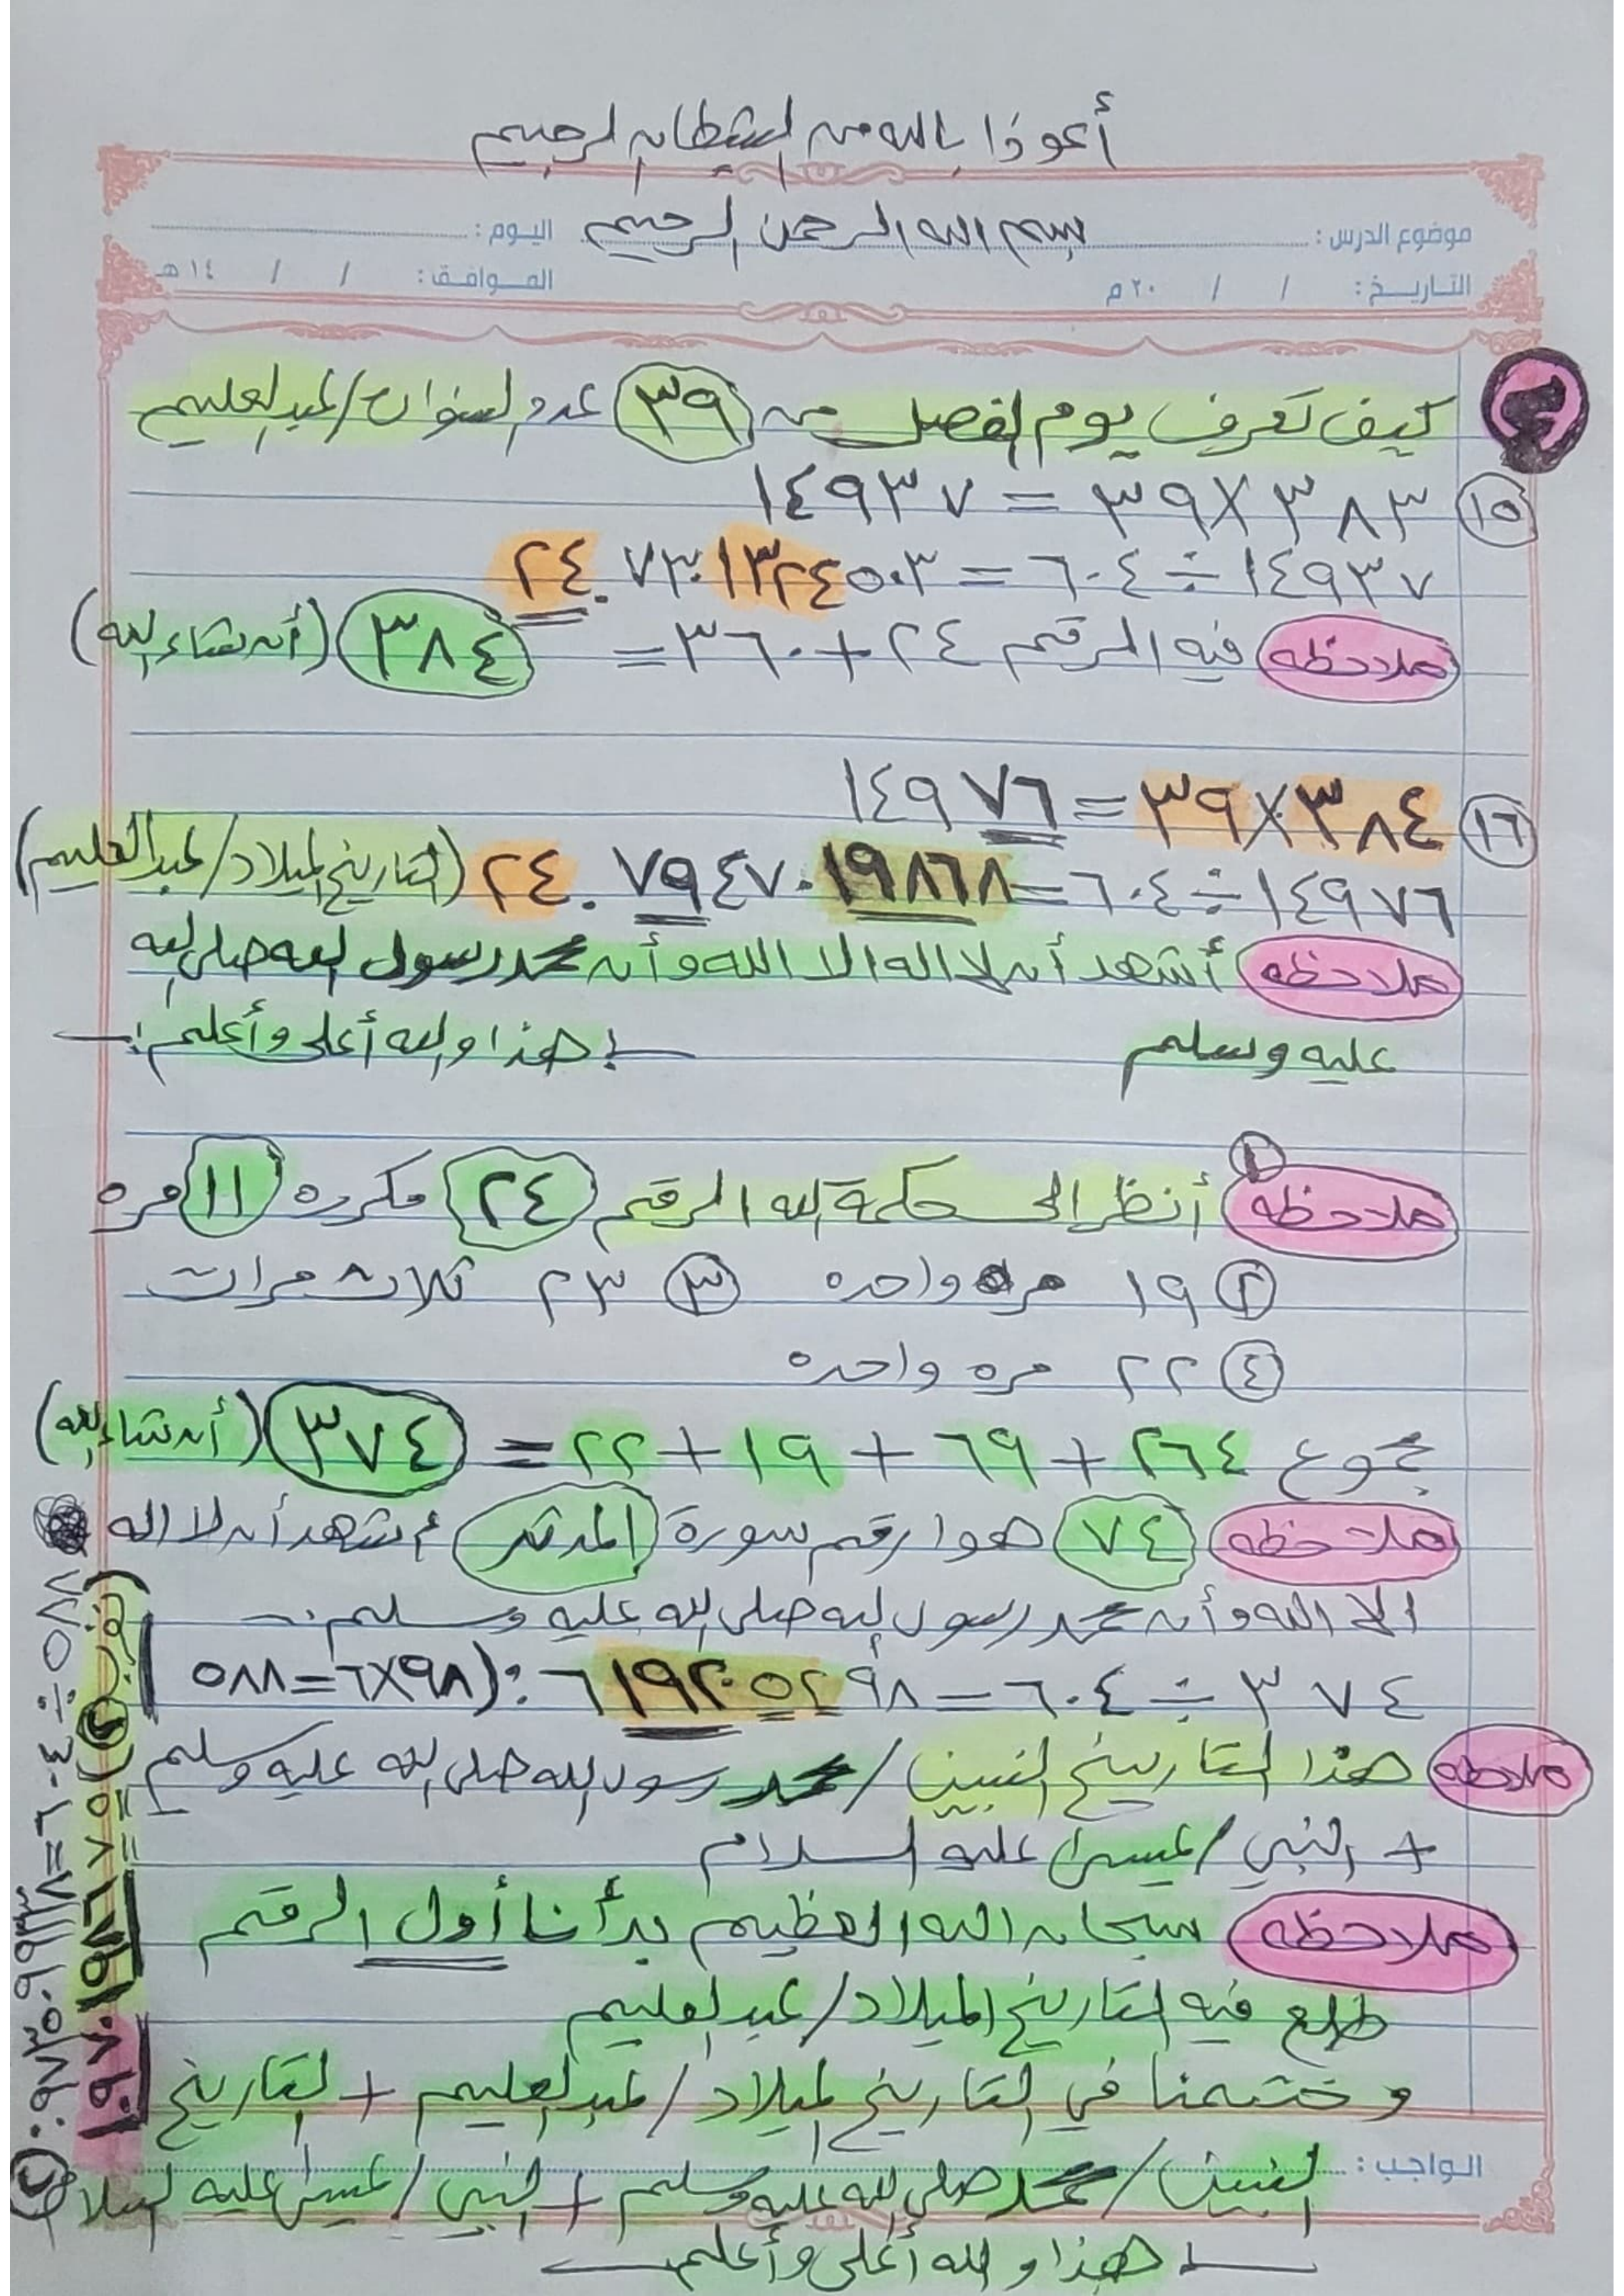 أعوذا بالله من الشيطان الرجيم
بسم الله الرحمن الرحيم
موضوع الدرس : اليوم :
التاريخ : / / ٢٠ م الموافق : / / ١٤ هـ
كيف تعرف يوم الفصل من ٣٩ عدد السنوات/عبدالعليم
١٥ ٣٨٣×٣٩ = ١٤٩٣٧
١٤٩٣٧ ÷ ٦٠٤ = ٢٤.٧٣٠١٣٢٤٥٠٣
ملاحظه فيه الرقم ٢٤+٣٦٠= ٣٨٤ (أن شاء الله)
١٦ ٣٨٤×٣٩ = ١٤٩٧٦
١٤٩٧٦ ÷ ٦٠٤ = ٢٤.٧٩٤٧٠١٩٨٦٨ (التاريخ الميلاد/عبدالعليم)
ملاحظه أشهد أن لا اله الا الله وأن محمد رسول الله صلى الله
عليه وسلم
هذا والله أعلى وأعلم
ملاحظه ١ أنظر الى حكمة الله الرقم ٢٤ مكرره ١١ مره
٢ ١٩ مره واحده ٣ ٢٣ ثلاث مرات
٤ ٢٢ مره واحده
مجموع ٢٦٤ + ٦٩ + ١٩ + ٢٢ = ٣٧٤ (أن شاء الله)
ملاحظه ٧٤ هوا رقم سورة المدثر أشهد أن لا اله
الا الله وأن محمد رسول الله صلى الله عليه وسلم
٣٧٤ ÷ ٦٠٤ = ٠.٦١٩٢٠٥٢٩٨ (٩٨×٦=٥٨٨
ملاحظه هذا التاريخ النبين/محمد رسول الله صلى الله عليه وسلم
+ النبي/عيسى عليه السلام
ملاحظه سبحان الله العظيم بدأنا أول الرقم
طلع فيه التاريخ الميلاد/عبدالعليم
وختمنا في التاريخ الميلاد/عبدالعليم + التاريخ
الواجب :
النبين/محمد صلى الله عليه وسلم + النبي/عيسى عليه السلام
هذا والله أعلى وأعلم